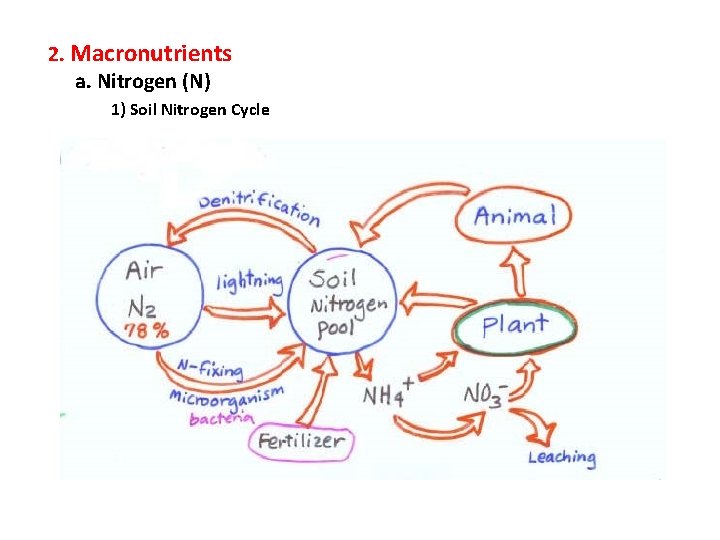 2. Macronutrients
a. Nitrogen (N)
1) Soil Nitrogen Cycle
Denitrification
Animal
Air
N2
78%
lightning
Soil
Nitrogen
Pool
Plant
N-fixing
Microorganism
bacteria
NH4+
NO3-
Fertilizer
Leaching